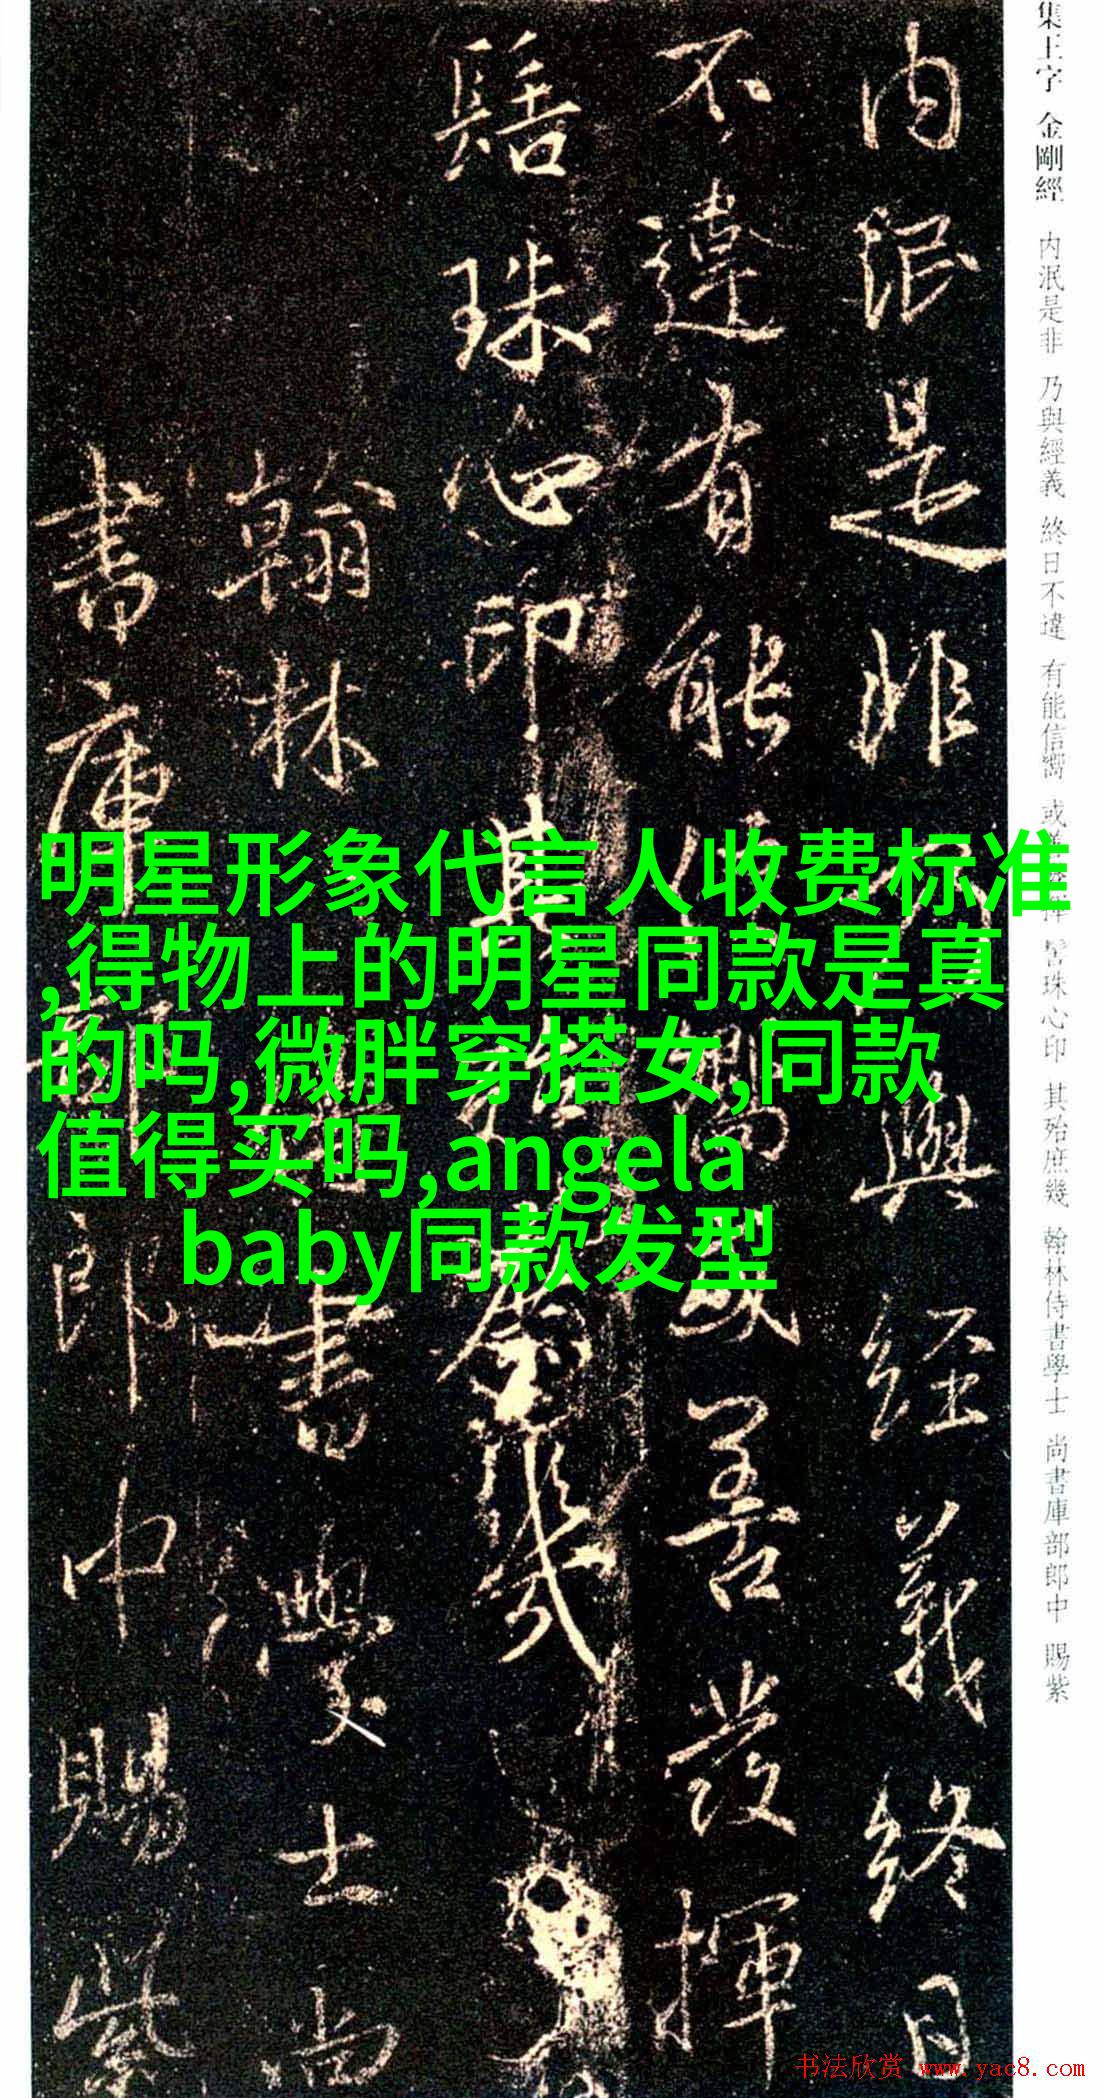 集王字 金剛經 内泯是非 乃與經義 終日不違 有能信嚮 或善發揮 髻珠心印 其殆庶幾 翰林侍書學士 尚書庫部郎中 賜紫
内泯是非乃與經義終日
不違有能信嚮或善發揮
髻珠心印其殆庶幾
翰林侍書學士尚
書庫部郎中賜紫
明星形象代言人收费标准
,得物上的明星同款是真
的吗,微胖穿搭女,同款
值得买吗,angela
baby同款发型
书法欣赏 www.yac8.com